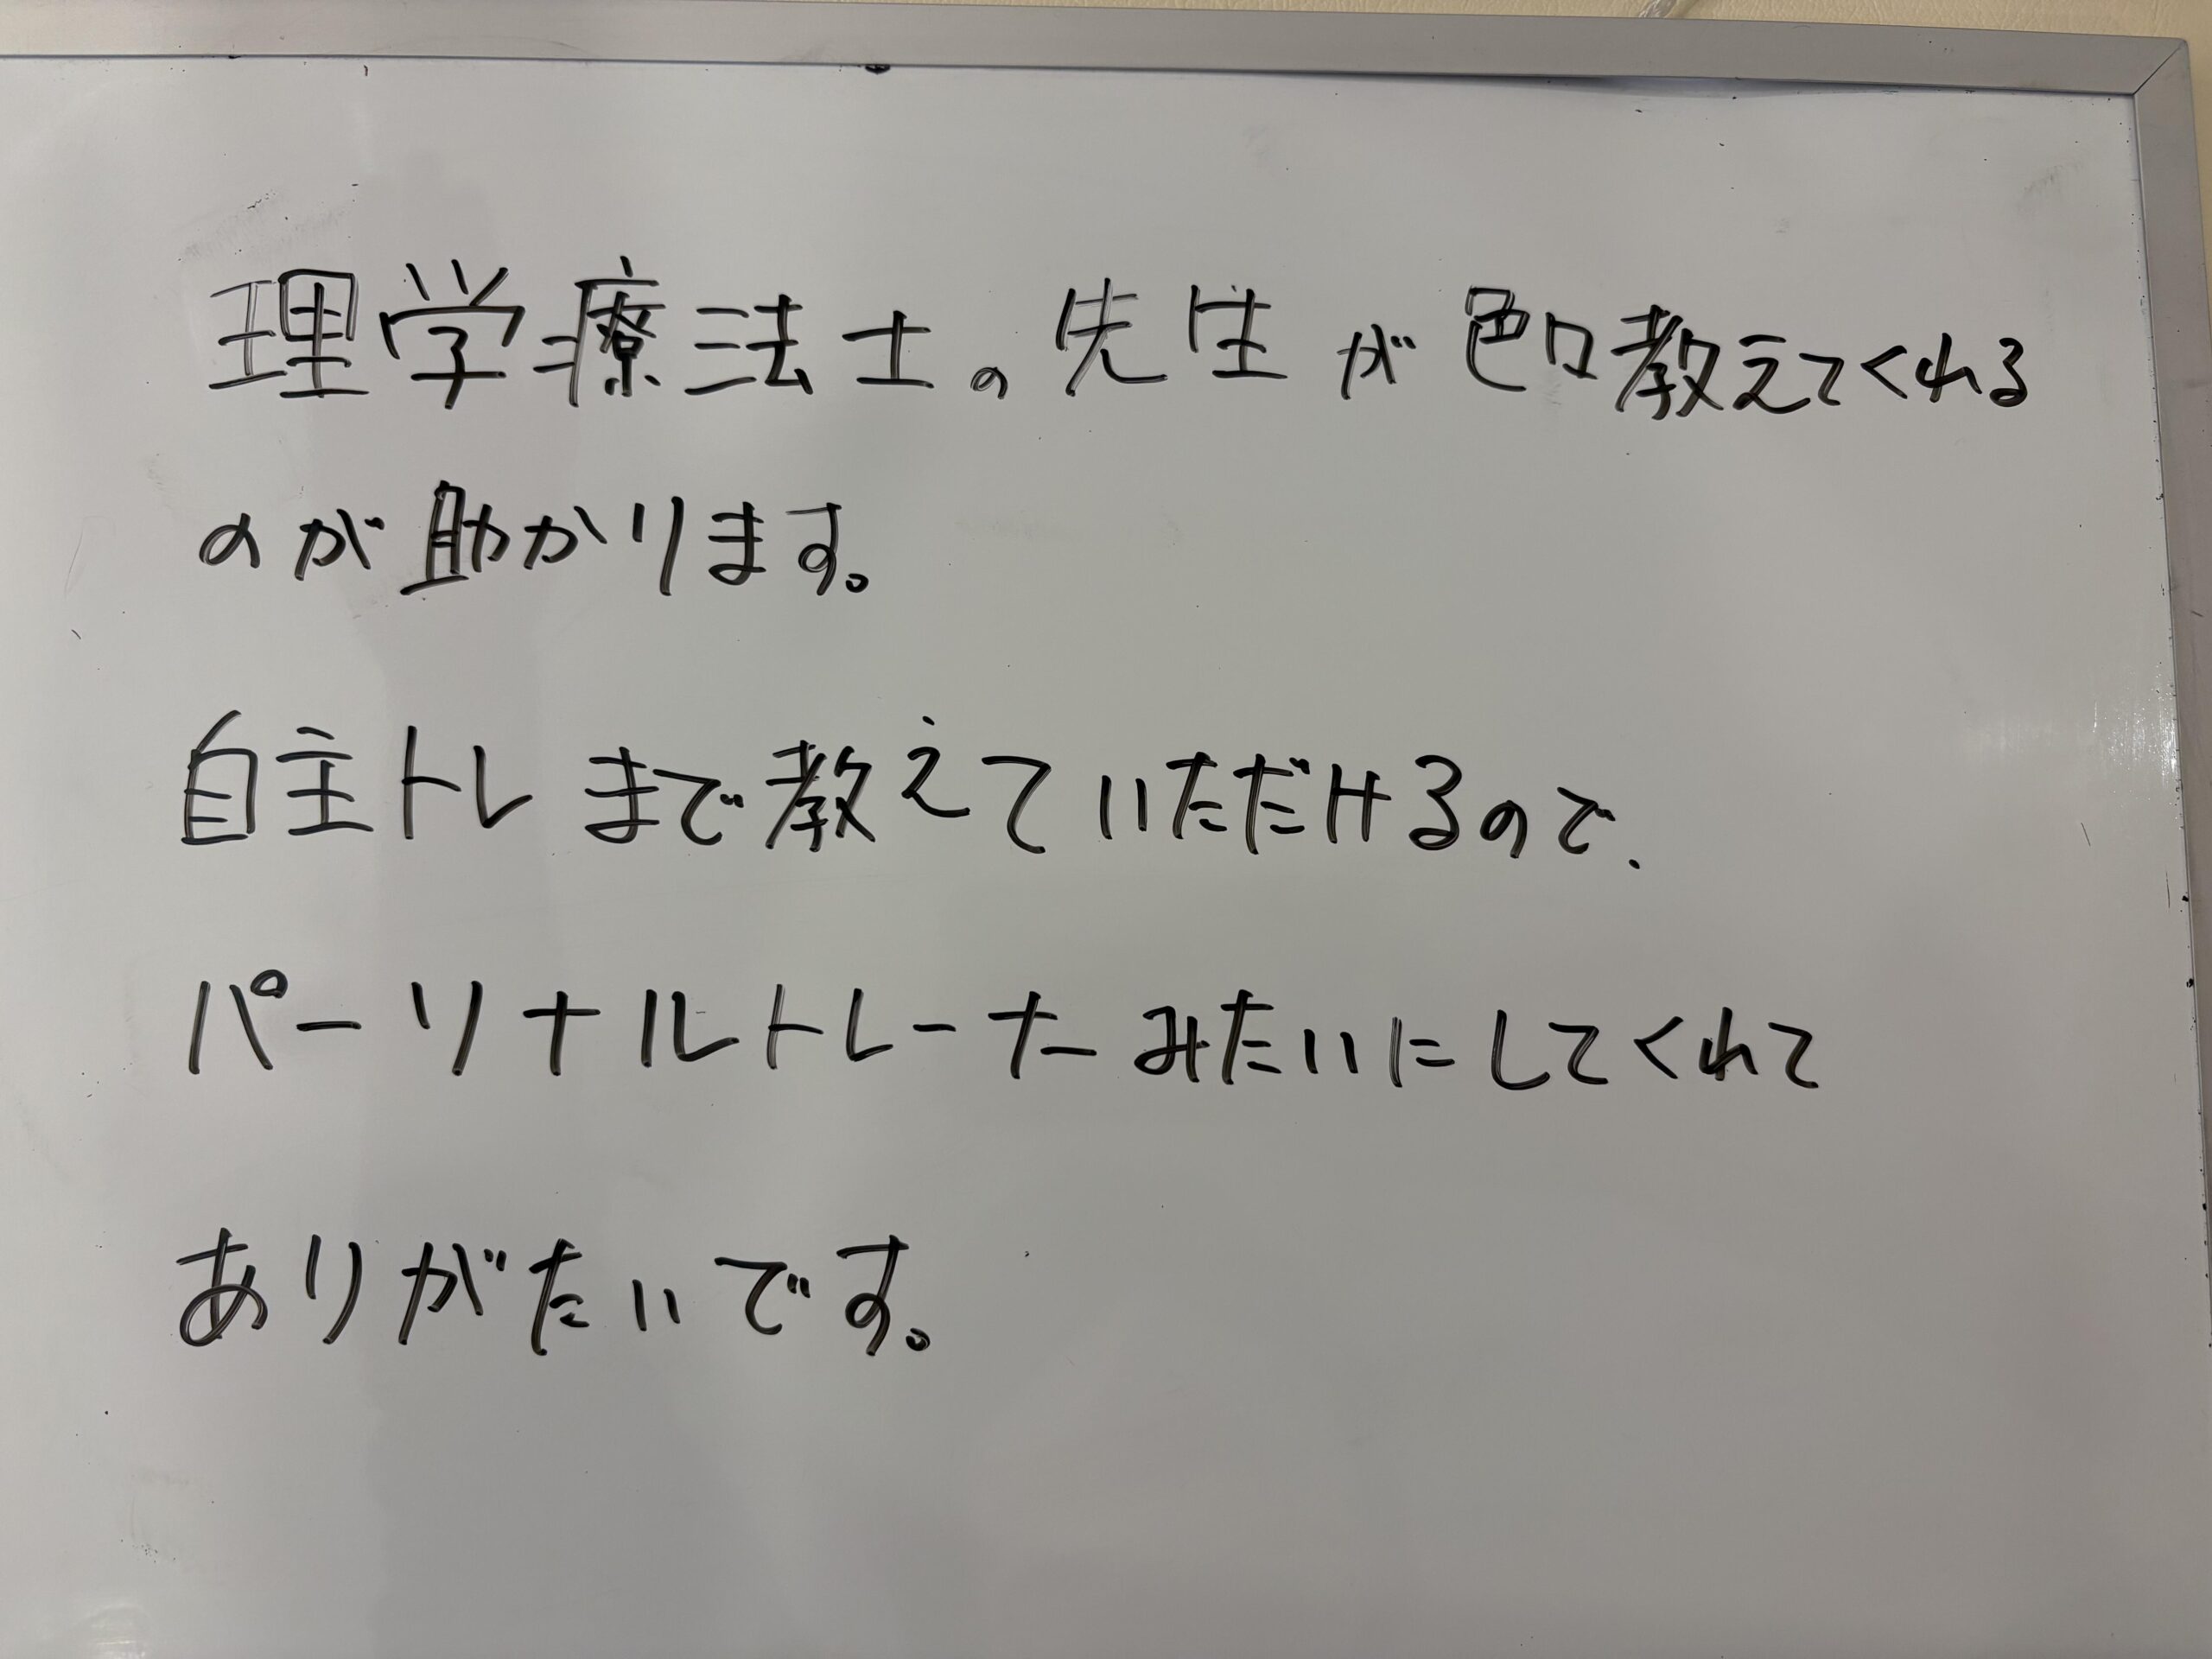 理学療法士の先生が色々教えてくれる
のが助かります。
自主トレまで教えていただけるので、
パーソナルトレーナーみたいにしてくれて
ありがたいです。